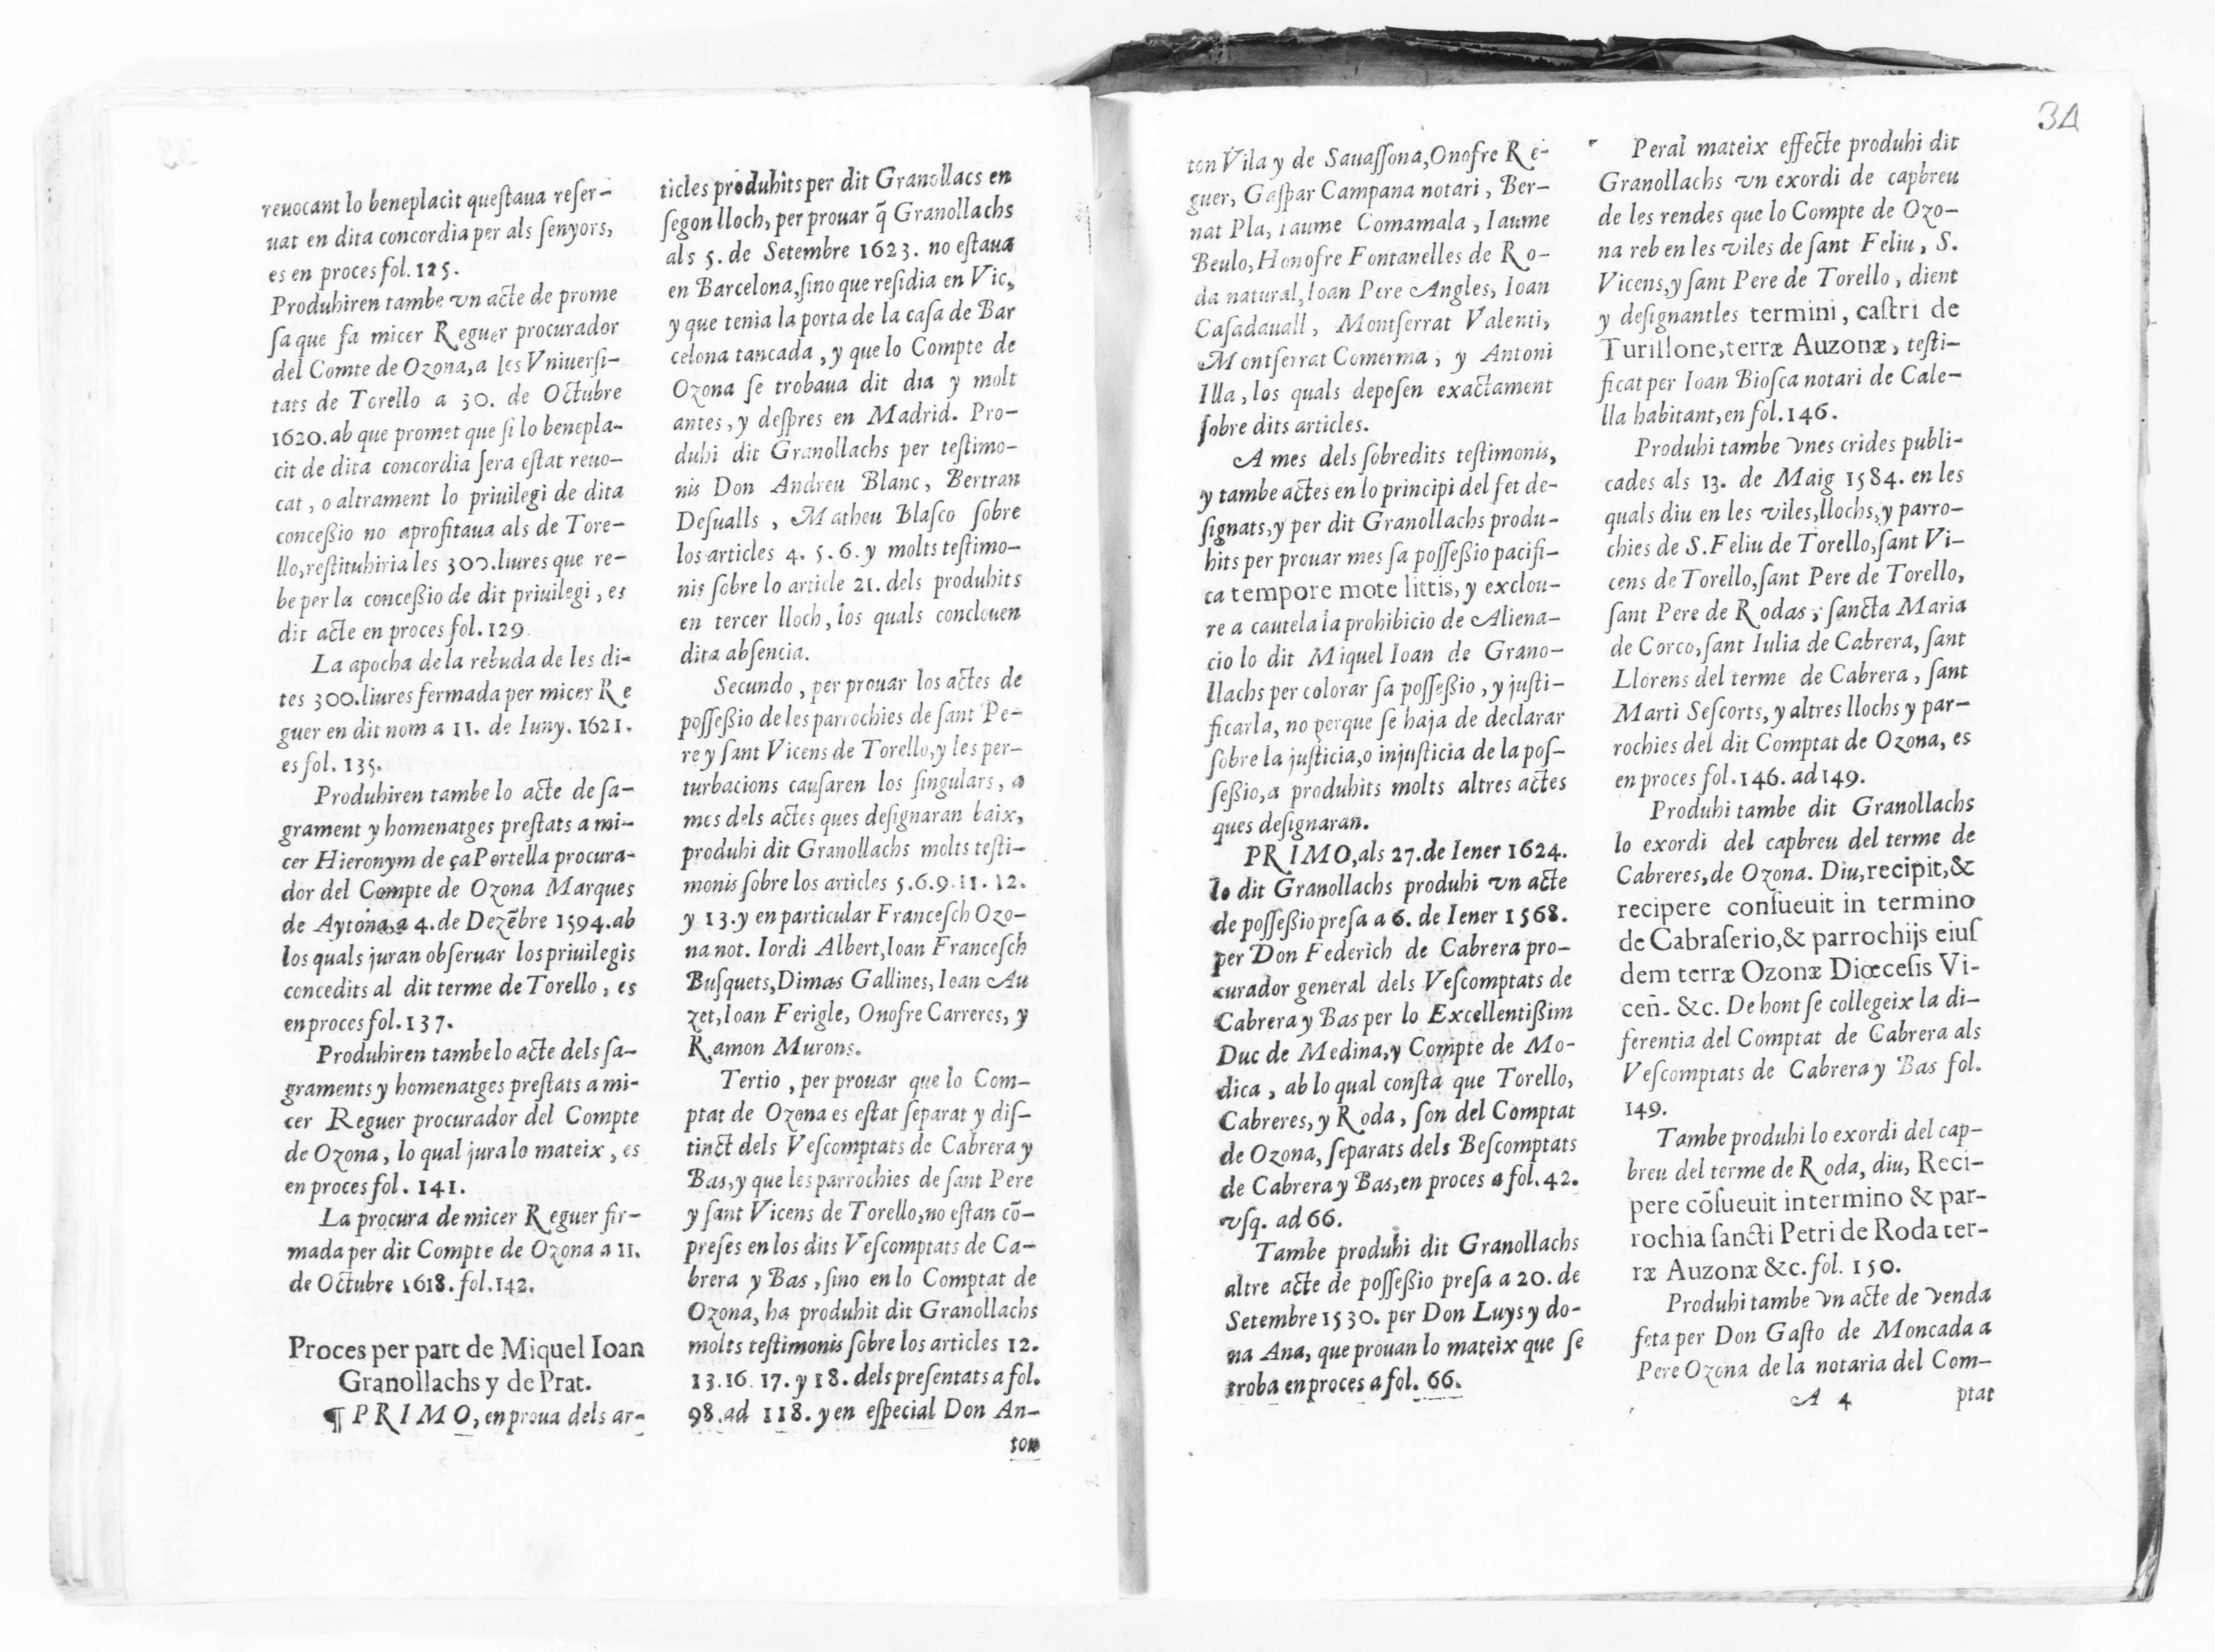 reuocant lo beneplacit questaua reser-
uat en dita concordia per als senyors,
es en proces fol. 125.
Produhiren tambe vn acte de prome
sa que fa micer Reguer procurador
del Comte de Ozona, a les Vniuersi-
tats de Torello a 30. de Octubre
1620. ab que promet que si lo benepla-
cit de dita concordia sera estat reuo-
cat, o altrament lo priuilegi de dita
conceßio no aprofitaua als de Tore-
llo, restituhiria les 300. liures que re-
be per la conceßio de dit priuilegi, es
dit acte en proces fol. 129
La apocha de la rebuda de les di-
tes 300. liures fermada per micer Re
guer en dit nom a 11. de Iuny. 1621.
es fol. 135.
Produhiren tambe lo acte de sa-
grament y homenatges prestats a mi-
cer Hieronym de ça Portella procura-
dor del Compte de Ozona Marques
de Aytona, a 4. de Dezẽbre 1594. ab
los quals juran obseruar los priuilegis
concedits al dit terme de Torello, es
en proces fol. 137.
Produhiren tambe lo acte dels sa-
graments y homenatges prestats a mi-
cer Reguer procurador del Compte
de Ozona, lo qual jura lo mateix, es
en proces fol. 141.
La procura de micer Reguer fir-
mada per dit Compte de Ozona a 11.
de Octubre 1618. fol. 142.
Proces per part de Miquel Ioan
Granollachs y de Prat.
¶ PRIMO, en proua dels ar-
ticles produhits per dit Granollacs en
segon lloch, per prouar q̃ Granollachs
als 5. de Setembre 1623. no estaua
en Barcelona, sino que residia en Vic,
y que tenia la porta de la casa de Bar
celona tancada, y que lo Compte de
Ozona se trobaua dit dia y molt
antes, y despres en Madrid. Pro-
duhi dit Granollachs per testimo-
nis Don Andreu Blanc, Bertran
Desualls, Matheu Blasco sobre
los articles 4. 5. 6. y molts testimo-
nis sobre lo article 21. dels produhits
en tercer lloch, los quals conclouen
dita absencia.
Secundo, per prouar los actes de
posseßio de les parrochies de sant Pe-
re y sant Vicens de Torello, y les per-
turbacions causaren los singulars, a
mes dels actes ques designaran baix,
produhi dit Granollachs molts testi-
monis sobre los articles 5.6.9.11.12.
y 13. y en particular Francesch Ozo-
na not. Iordi Albert, Ioan Francesch
Busquets, Dimas Gallines, Ioan Au
zet, Ioan Ferigle, Onofre Carreres, y
Ramon Murons.
Tertio, per prouar que lo Com-
ptat de Ozona es estat separat y dis-
tinct dels Vescomptats de Cabrera y
Bas, y que les parrochies de sant Pere
y sant Vicens de Torello, no estan cõ-
preses en los dits Vescomptats de Ca-
brera y Bas, sino en lo Comptat de
Ozona, ha produhit dit Granollachs
molts testimonis sobre los articles 12.
13.16. 17. y 18. dels presentats a fol.
98. ad 118. y en especial Don An-
ton
34
ton Vila y de Sauassona, Onofre Re-
guer, Gaspar Campana notari, Ber-
nat Pla, Iaume Comamala, Iaume
Beulo, Honofre Fontanelles de Ro-
da natural, Ioan Pere Angles, Ioan
Casadauall, Montserrat Valenti,
Montserrat Comerma, y Antoni
Illa, los quals deposen exactament
sobre dits articles.
A mes dels sobredits testimonis,
y tambe actes en lo principi del fet de-
signats, y per dit Granollachs produ-
hits per prouar mes sa posseßio pacifi-
ca tempore mote littis, y exclou-
re a cautela la prohibicio de Aliena-
cio lo dit Miquel Ioan de Grano-
llachs per colorar sa posseßio, y justi-
ficarla, no perque se haja de declarar
sobre la justicia, o injusticia de la pos-
seßio, a produhits molts altres actes
ques designaran.
PRIMO, als 27. de Iener 1624.
lo dit Granollachs produhi vn acte
de posseßio presa a 6. de Iener 1568.
per Don Federich de Cabrera pro-
curador general dels Vescomptats de
Cabrera y Bas per lo Excellentißim
Duc de Medina, y Compte de Mo-
dica, ab lo qual consta que Torello,
Cabreres, y Roda, son del Comptat
de Ozona, separats dels Bescomptats
de Cabrera y Bas, en proces a fol. 42.
vsq. ad 66.
Tambe produhi dit Granollachs
altre acte de posseßio presa a 20. de
Setembre 1530. per Don Luys y do-
na Ana, que prouan lo mateix que se
troba en proces a fol. 66.
Peral mateix effecte produhi dit
Granollachs vn exordi de capbreu
de les rendes que lo Compte de Ozo-
na reb en les viles de sant Feliu, S.
Vicens, y sant Pere de Torello, dient
y designantles termini, castri de
Turillone, terræ Auzonæ, testi-
ficat per Ioan Biosca notari de Cale-
lla habitant, en fol. 146.
Produhi tambe vnes crides publi-
cades als 13. de Maig 1584. en les
quals diu en les viles, llochs, y parro-
chies de S. Feliu de Torello, sant Vi-
cens de Torello, sant Pere de Torello,
sant Pere de Rodas, sancta Maria
de Corco, sant Iulia de Cabrera, sant
Llorens del terme de Cabrera, sant
Marti Sescorts, y altres llochs y par-
rochies del dit Comptat de Ozona, es
en proces fol. 146. ad 149.
Produhi tambe dit Granollachs
lo exordi del capbreu del terme de
Cabreres, de Ozona. Diu, recipit, &
recipere consueuit in termino
de Cabraserio, & parrochijs eius
dem terræ Ozonæ Diœcesis Vi-
ceñ. &c. De hont se collegeix la di-
ferentia del Comptat de Cabrera als
Vescomptats de Cabrera y Bas fol.
149.
Tambe produhi lo exordi del cap-
breu del terme de Roda, diu, Reci-
pere cõsueuit in termino & par-
rochia sancti Petri de Roda ter-
ræ Auzonæ &c. fol. 150.
Produhi tambe vn acte de venda
feta per Don Gasto de Moncada a
Pere Ozona de la notaria del Com-
A 4 ptat